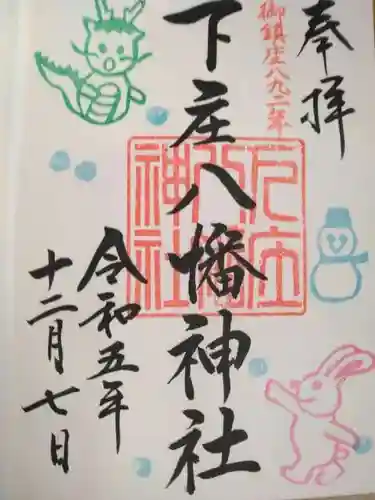 奉拝
御鎮座八九二年
下庄八幡神社
下庄八幡神社
令和五年
十二月七日